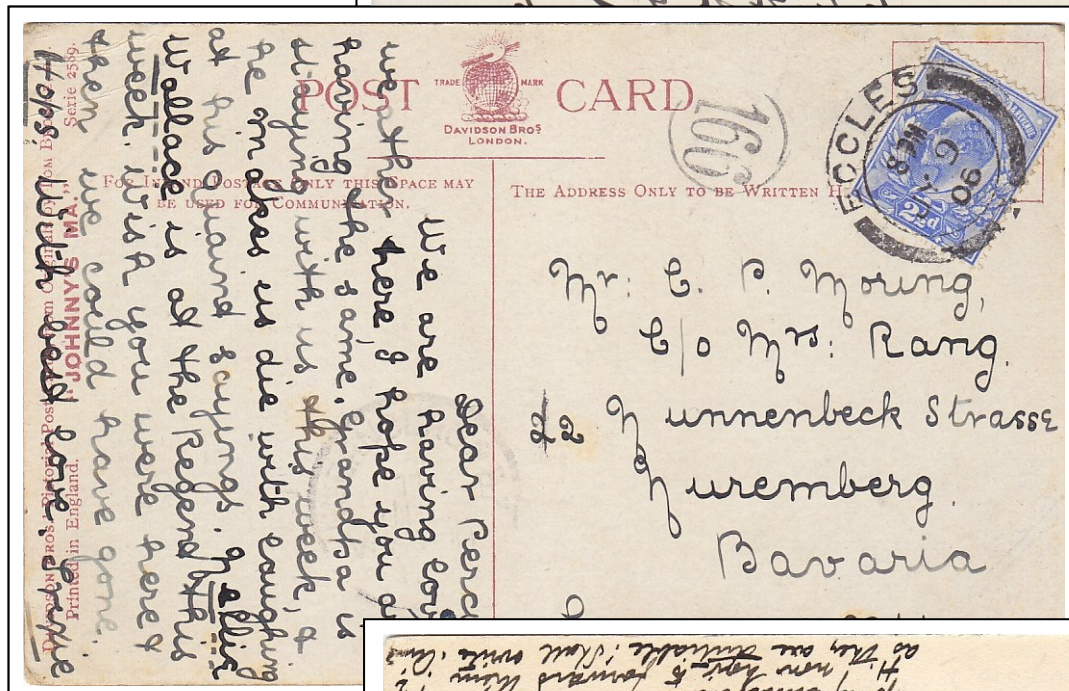 POST CARD
TRADE MARK
DAVIDSON BROS
LONDON.
FOR INLAND POSTAGE ONLY THIS SPACE MAY
BE USED FOR COMMUNICATION.
THE ADDRESS ONLY TO BE WRITTEN H
166
ECCLES
8 PM
JY 9
06
2½d
Mr: C. P. Mouring,
C/o Mrs: Rang.
22 Nunnenbeck Strasse
Nuremberg.
Bavaria
Dear Perc
We are having lov
weather here, I hope you a
having the same. Grandpa is
staying with us this week, &
he makes us die with laughing
at his quaint sayings. Nellie
Wallace is at the Regent this
week. Wish you were here &
then we could have gone.
Heps. With best love.
Serie 2569.
"JOHNNY'S MA."
DAVIDSON BROS
Printed in England.
as they are
forward them